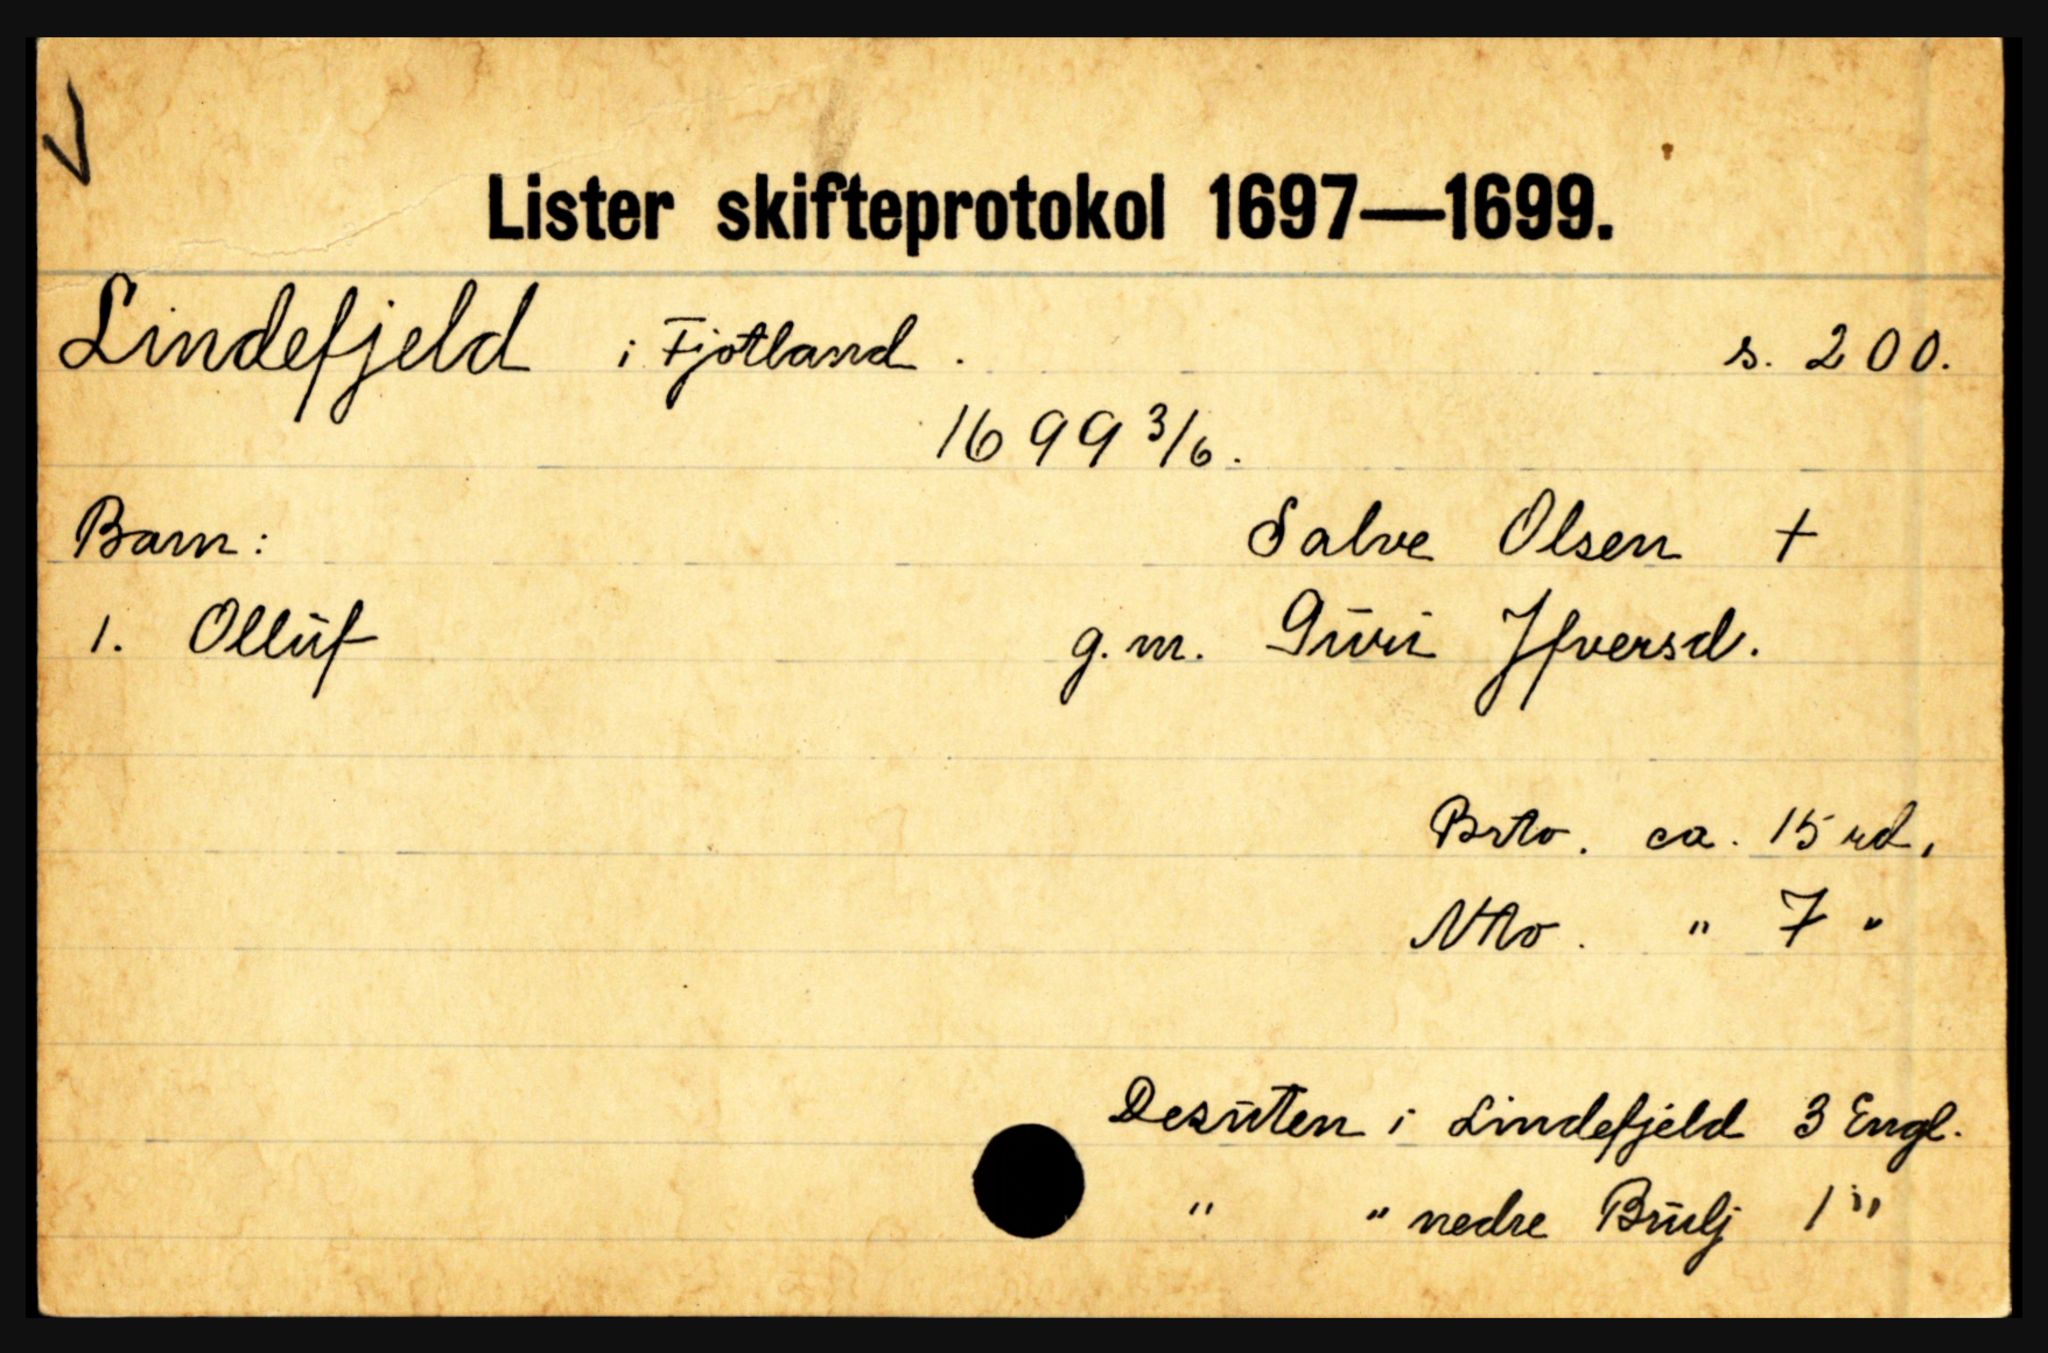 Lister skifteprotokol 1697—1699.
Lindefjeld i Fjotland. s. 200.
1699 3/6.
Barn: Salve Olsen +
1. Olluf g. m. Guri Ifversd.
Brto. ca. 15 rd.
Nto. " 7 "
Desuten i Lindefjeld 3 Engl.
" " nedre 1 "